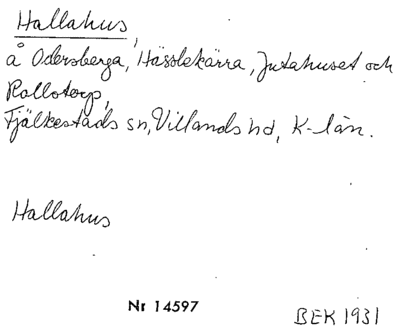 Hallahus,
å Odersberga, Hässlekärra, Jutahuset och
Rallstorp,
Fjälkestads sn, Villands hd, K-län.
Hallahus
Nr 14597
BEK 1931